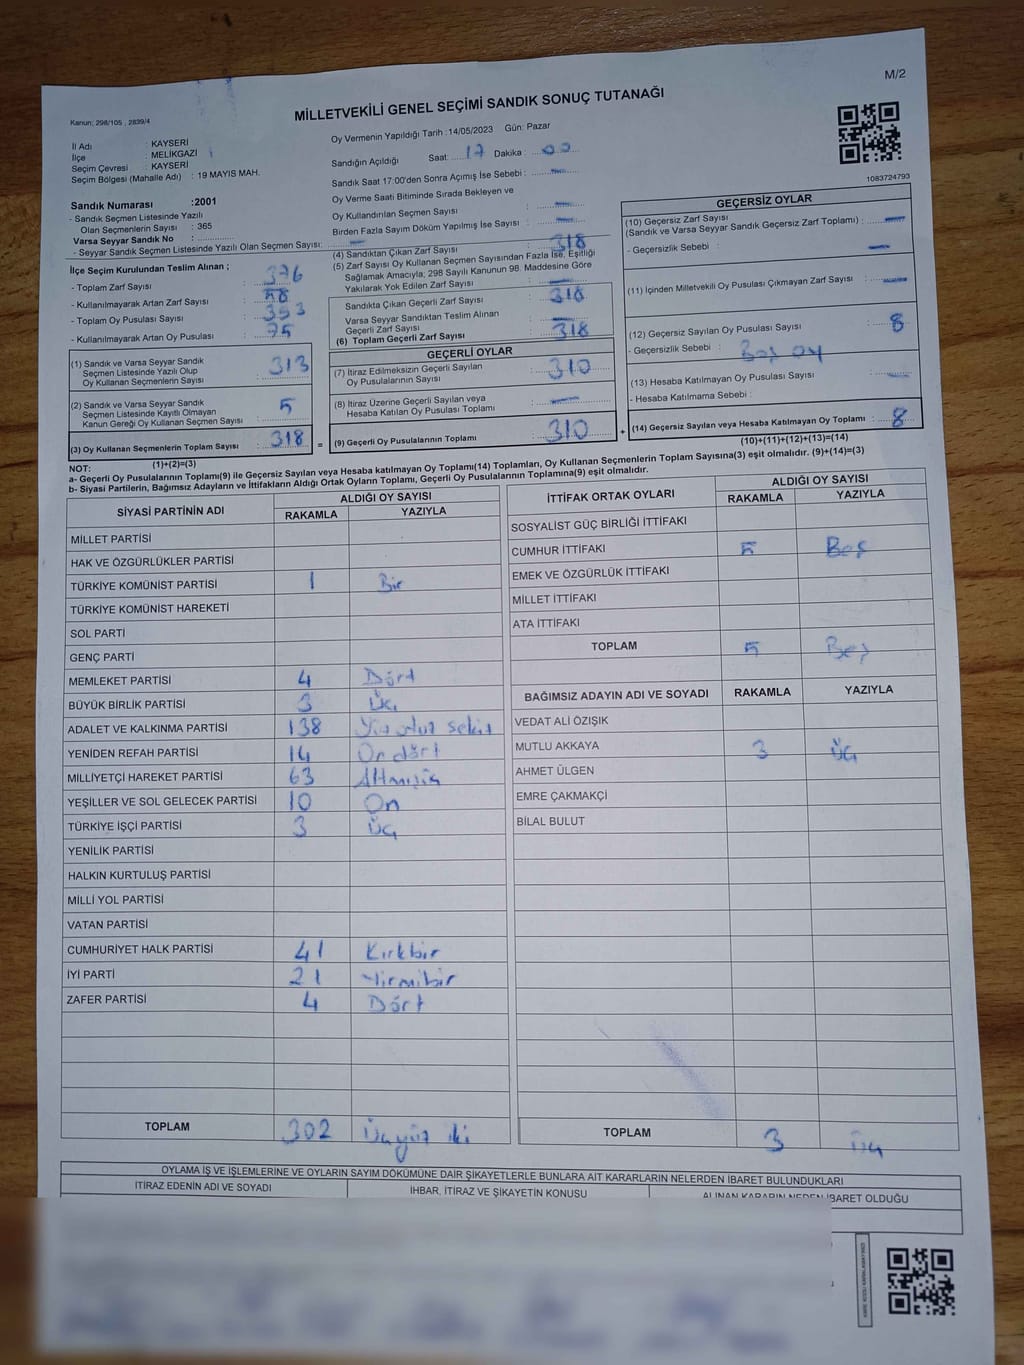 M/2
MİLLETVEKİLİ GENEL SEÇİMİ SANDIK SONUÇ TUTANAĞI
Kanun: 298/105 , 2839/4
İl Adı : KAYSERİ
İlçe : MELİKGAZİ
Seçim Çevresi : KAYSERİ
Seçim Bölgesi (Mahalle Adı) : 19 MAYIS MAH.
Oy Vermenin Yapıldığı Tarih :14/05/2023 Gün: Pazar
Sandığın Açıldığı Saat: 17 Dakika : 00
Sandık Saat 17:00'den Sonra Açımış İse Sebebi : —
Oy Verme Saati Bitiminde Sırada Bekleyen ve
Oy Kullandırılan Seçmen Sayısı : —
Birden Fazla Sayım Döküm Yapılmış İse Sayısı : —
1083724793
Sandık Numarası :2001
- Sandık Seçmen Listesinde Yazılı
Olan Seçmenlerin Sayısı : 365
Varsa Seyyar Sandık No :
- Seyyar Sandık Seçmen Listesinde Yazılı Olan Seçmen Sayısı: —
İlçe Seçim Kurulundan Teslim Alınan ;
- Toplam Zarf Sayısı : 376
- Kullanılmayarak Artan Zarf Sayısı : 58
- Toplam Oy Pusulası Sayısı : 393
- Kullanılmayarak Artan Oy Pusulası : 75
(1) Sandık ve Varsa Seyyar Sandık
Seçmen Listesinde Yazılı Olup
Oy Kullanan Seçmenlerin Sayısı : 313
(2) Sandık ve Varsa Seyyar Sandık
Seçmen Listesinde Kayıtlı Olmayan
Kanun Gereği Oy Kullanan Seçmen Sayısı : 5
(3) Oy Kullanan Seçmenlerin Toplam Sayısı : 318 =
(1)+(2)=(3)
(4) Sandıktan Çıkan Zarf Sayısı : 318
(5) Zarf Sayısı Oy Kullanan Seçmen Sayısından Fazla İse, Eşitliği
Sağlamak Amacıyla; 298 Sayılı Kanunun 98. Maddesine Göre
Yakılarak Yok Edilen Zarf Sayısı : —
Sandıkta Çıkan Geçerli Zarf Sayısı : 318
Varsa Seyyar Sandıktan Teslim Alınan
Geçerli Zarf Sayısı : —
(6) Toplam Geçerli Zarf Sayısı : 318
GEÇERLİ OYLAR
(7) İtiraz Edilmeksizin Geçerli Sayılan
Oy Pusulalarının Sayısı : 310
(8) İtiraz Üzerine Geçerli Sayılan veya
Hesaba Katılan Oy Pusulası Toplamı : —
(9) Geçerli Oy Pusulalarının Toplamı : 310 +
GEÇERSİZ OYLAR
(10) Geçersiz Zarf Sayısı
(Sandık ve Varsa Seyyar Sandık Geçersiz Zarf Toplamı) : —
- Geçersizlik Sebebi : —
(11) İçinden Milletvekili Oy Pusulası Çıkmayan Zarf Sayısı : —
(12) Geçersiz Sayılan Oy Pusulası Sayısı : 8
- Geçersizlik Sebebi : Boş oy
(13) Hesaba Katılmayan Oy Pusulası Sayısı : —
- Hesaba Katılmama Sebebi :
(14) Geçersiz Sayılan veya Hesaba Katılmayan Oy Toplamı : 8
(10)+(11)+(12)+(13)=(14)
NOT:
a- Geçerli Oy Pusulalarının Toplamı(9) ile Geçersiz Sayılan veya Hesaba katılmayan Oy Toplamı(14) Toplamları, Oy Kullanan Seçmenlerin Toplam Sayısına(3) eşit olmalıdır. (9)+(14)=(3)
b- Siyasi Partilerin, Bağımsız Adayların ve İttifakların Aldığı Ortak Oyların Toplamı, Geçerli Oy Pusulalarının Toplamına(9) eşit olmalıdır.
SİYASİ PARTİNİN ADI ALDIĞI OY SAYISI
RAKAMLA YAZIYLA
MİLLET PARTİSİ
HAK VE ÖZGÜRLÜKLER PARTİSİ
TÜRKİYE KOMÜNİST PARTİSİ 1 Bir
TÜRKİYE KOMÜNİST HAREKETİ
SOL PARTİ
GENÇ PARTİ
MEMLEKET PARTİSİ 4 Dört
BÜYÜK BİRLİK PARTİSİ 3 Üç
ADALET VE KALKINMA PARTİSİ 138 Yüz otuz sekiz
YENİDEN REFAH PARTİSİ 14 On dört
MİLLİYETÇİ HAREKET PARTİSİ 63 Altmışüç
YEŞİLLER VE SOL GELECEK PARTİSİ 10 On
TÜRKİYE İŞÇİ PARTİSİ 3 Üç
YENİLİK PARTİSİ
HALKIN KURTULUŞ PARTİSİ
MİLLİ YOL PARTİSİ
VATAN PARTİSİ
CUMHURİYET HALK PARTİSİ 41 Kırkbir
İYİ PARTİ 21 Yirmibir
ZAFER PARTİSİ 4 Dört
TOPLAM 302 Üçyüz iki
İTTİFAK ORTAK OYLARI ALDIĞI OY SAYISI
RAKAMLA YAZIYLA
SOSYALİST GÜÇ BİRLİĞİ İTTİFAKI
CUMHUR İTTİFAKI 5 Beş
EMEK VE ÖZGÜRLÜK İTTİFAKI
MİLLET İTTİFAKI
ATA İTTİFAKI
TOPLAM 5 Beş
BAĞIMSIZ ADAYIN ADI VE SOYADI RAKAMLA YAZIYLA
VEDAT ALİ ÖZIŞIK
MUTLU AKKAYA 3 Üç
AHMET ÜLGEN
EMRE ÇAKMAKÇİ
BİLAL BULUT
TOPLAM 3 Üç
OYLAMA İŞ VE İŞLEMLERİNE VE OYLARIN SAYIM DÖKÜMÜNE DAİR ŞİKAYETLERLE BUNLARA AİT KARARLARIN NELERDEN İBARET BULUNDUKLARI
İTİRAZ EDENİN ADI VE SOYADI İHBAR, İTİRAZ VE ŞİKAYETİN KONUSU ALINAN KARARIN NEDEN İBARET OLDUĞU